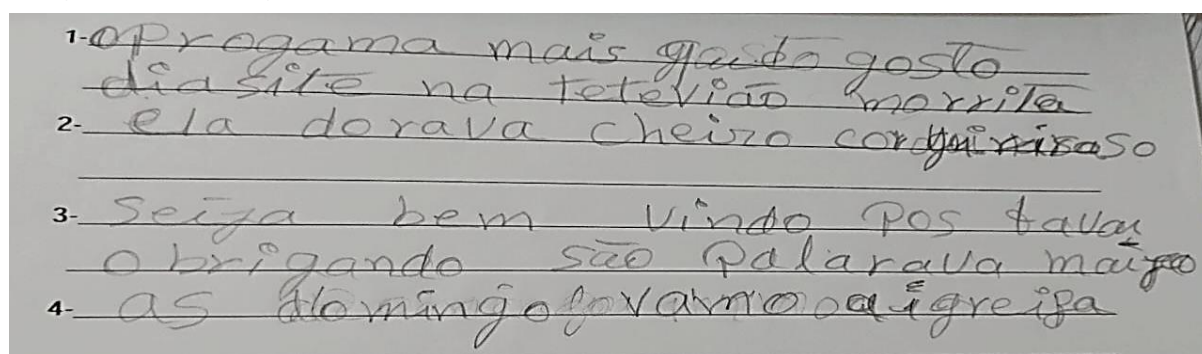 1- oprogama mais gosto
diasite na tetevião morrila
2- ela dorava cheizo
3- Seiza bem vindo pos tavou
obrigando são palarava
4- as domingo vamo a igreifa